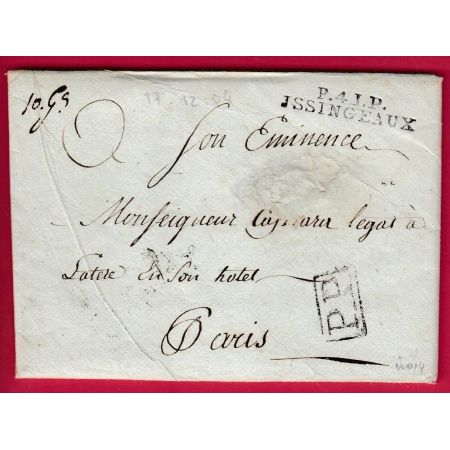 17 12 04
10. Gs
P.41.P.
ISSINGEAUX
A Son Eminence
Monseigneur Caprara legat à
Latere En Son hotel
P.P.
Paris